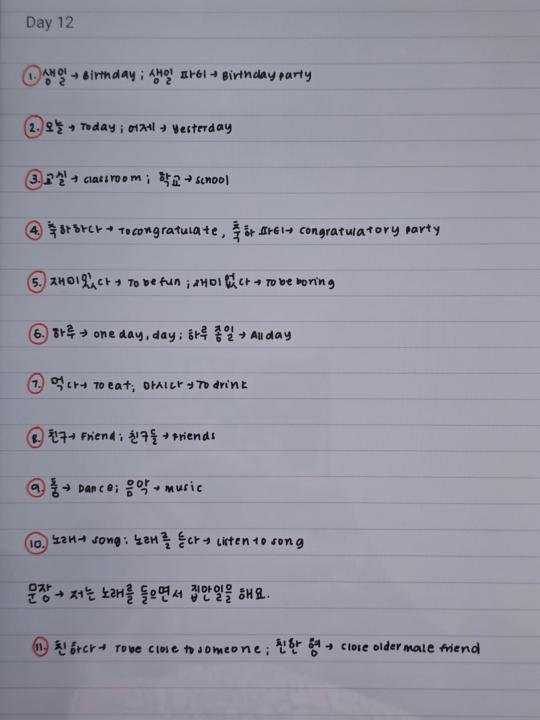 Day 12
1. 생일 → Birthday ; 생일 파티 → Birthday party
2. 오늘 → Today ; 어제 → yesterday
3. 교실 → classroom ; 학교 → school
4. 축하하다 → To congratulate, 축하 파티 → congratulatory party
5. 재미있다 → To be fun ; 재미없다 → To be boring
6. 하루 → one day, day ; 하루 종일 → All day
7. 먹다 → To eat; 마시다 → To drink
8. 친구 → Friend ; 친구들 → Friends
9. 춤 → Dance; 음악 → music
10. 노래 → song : 노래를 듣다 → Listen to song
문장 → 저는 노래를 들으면서 집안일을 해요.
11. 친하다 → To be close to someone ; 친한 형 → close older male friend